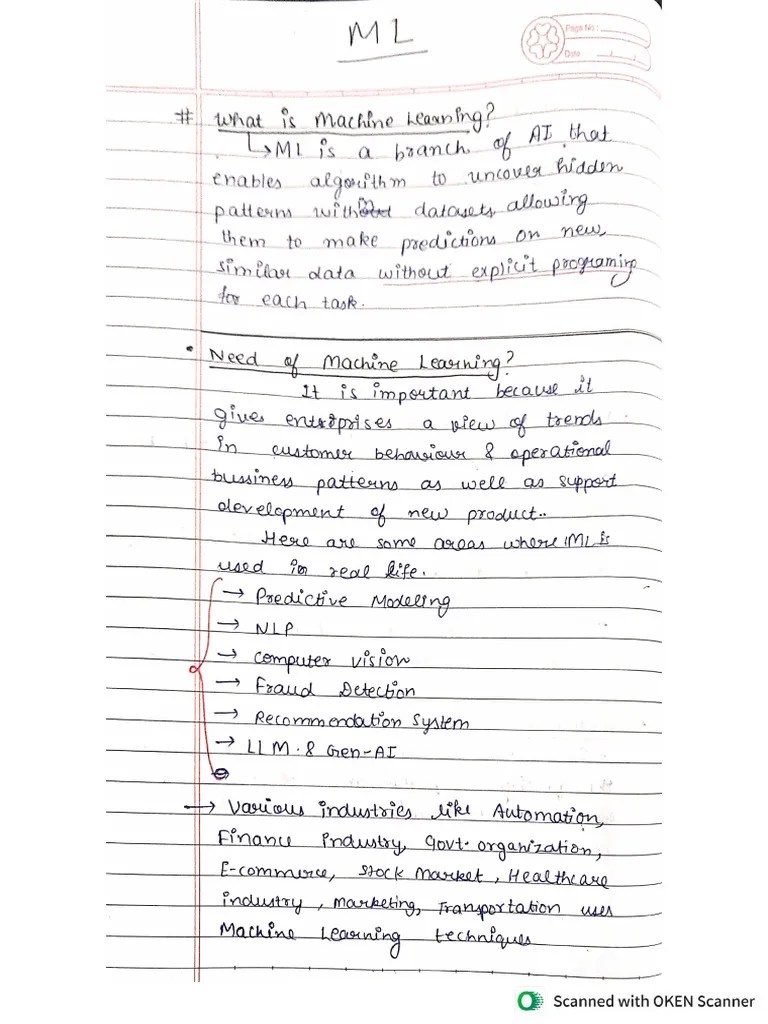 ML
Page No:
Date
# What is Machine Learning?
↳ ML is a branch of AI that
enables algorithm to uncover hidden
patterns within datasets, allowing
them to make predictions on new,
similar data without explicit programing
for each task.
• Need of Machine Learning?
It is important because it
gives enterprises a view of trends
in customer behaviour & operational
bussiness patterns as well as support
development of new product..
Here are some areas where ML is
used in real life.
→ Predictive Modeling
→ NLP
→ Computer vision
→ Fraud Detection
→ Recommendation System
→ LLM. & Gen-AI
→ Various industries like Automation,
Finance industry, Govt. organization,
E-commerce, Stock Market, Healthcare
industry, marketing, Transportation uses
Machine Learning techniques
Scanned with OKEN Scanner